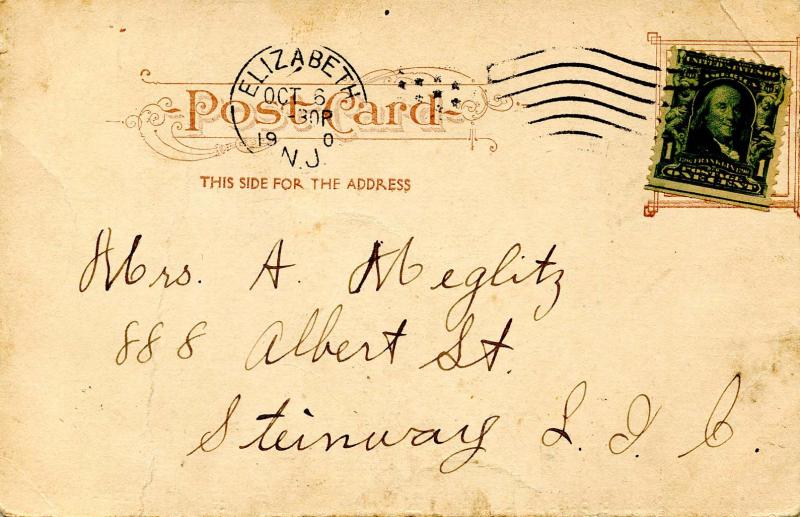 ELIZABETH
OCT 6
-30P
19 0
N.J.
Post Card
THIS SIDE FOR THE ADDRESS
1 FRANKLIN 1
POSTAGE
ONE CENT
Mrs. A. Meglitz
888 Albert St.
Steinway L. I. C.